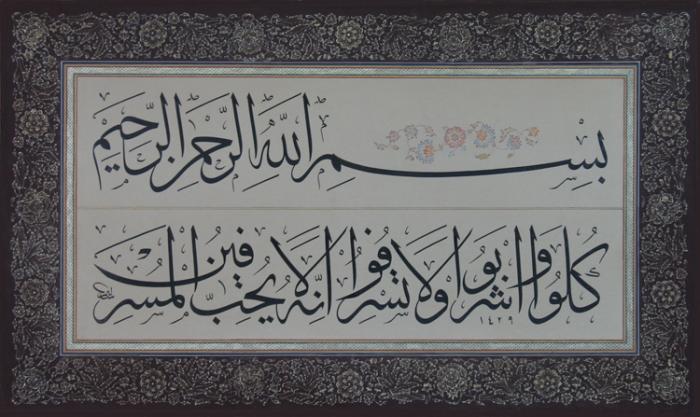 بِسْمِ اللَّهِ الرَّحْمٰنِ الرَّحِيمِ
كُلُوا وَاشْرَبُوا وَلَا تُسْرِفُوا اِنَّهُ لَا يُحِبُّ الْمُسْرِفِينَ
١٤٢٩